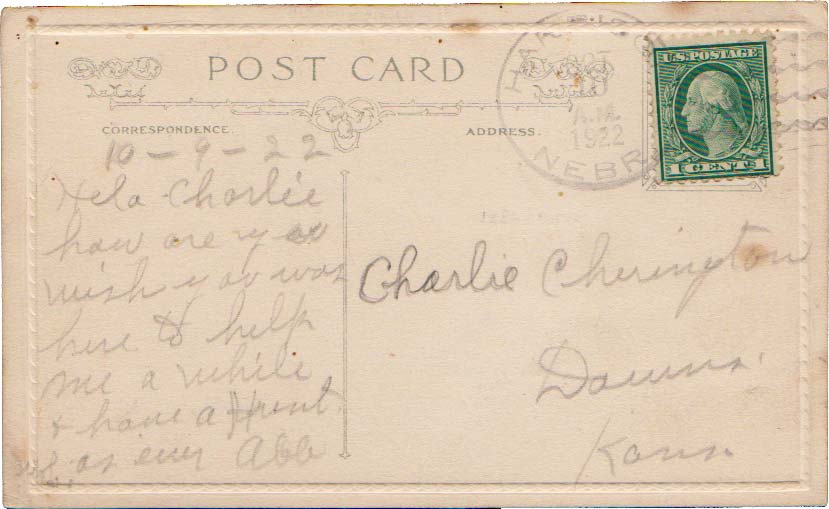 POST CARD
CORRESPONDENCE.
ADDRESS.
OCT
A.M.
1922
NEBR
U.S. POSTAGE
1 CENTS 1
10-9-22
Helo Charlie
how are you
wish you was
here to help
me a while
+ have a Hunt
as ever Abb
Charlie Cherington
Downs.
Kans.